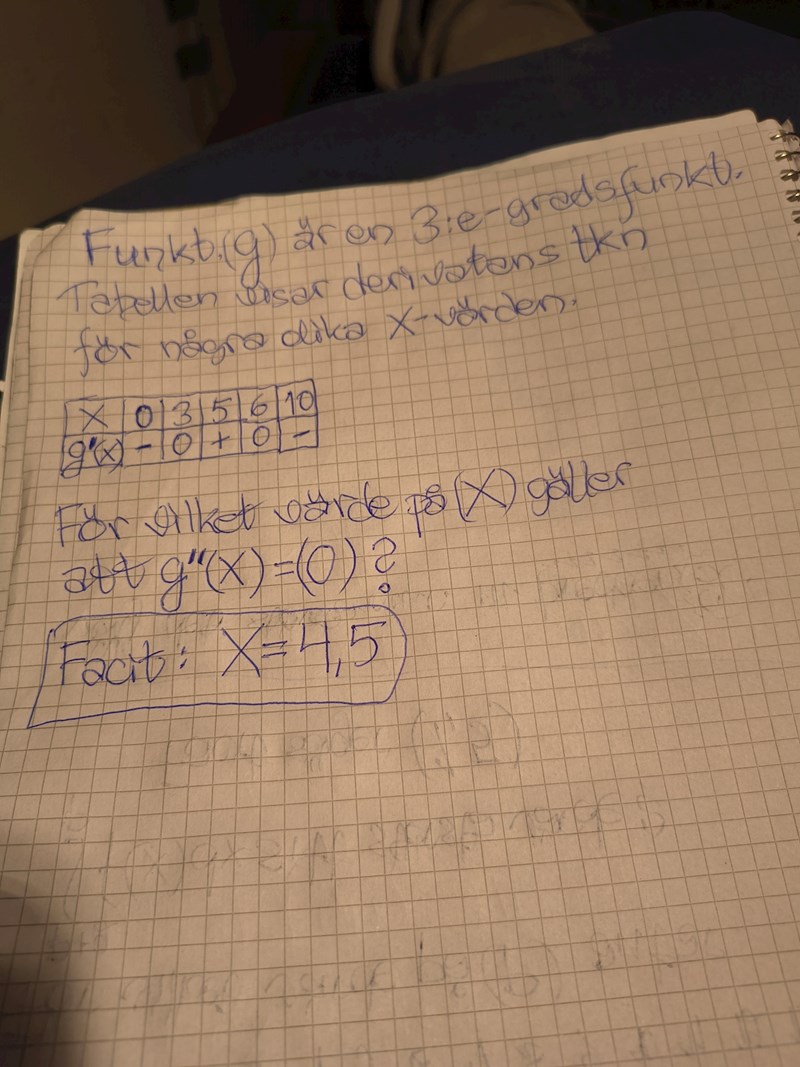 Funkt.(g) är en 3:e-gradsfunkt.
Tabellen visar derivatans tkn
för några olika X-värden.
X 0 3 5 6 10
g'(x) - 0 + 0 -
För vilket värde på (X) gäller
att g''(X)=(0)?
Facit: X=4,5